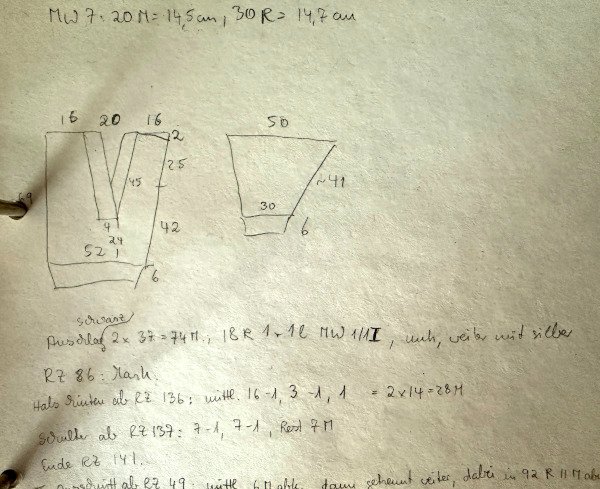 MW 7: 20 M = 14,5 cm, 30 R = 14,7 cm
16 20 16
2
25
45
69
4
42
24
52
6
50
~41
30
6
schwarz
Anschlag 2 x 37 = 74 M., 18 R 1r 1l MW 1/1 I, weiter mit silber
RZ 86: Mark.
Hals hinten ab RZ 136: mittl. 16 -1, 3 -1, 1 = 2x14 = 28 M
Schulter ab RZ 137: 7-1, 7-1, Rest 7 M
Ende RZ 141.
ab RZ 49 mittl. 6 M abk. dann getrennt weiter, dabei in 92 R 11 M abn